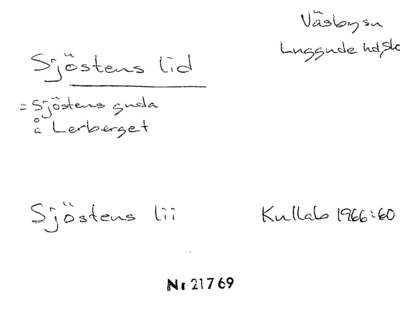 Väsby sn
Luggude hd, Sk
Sjöstens lid
= Sjöstens guda
å Lerberget
Sjöstens lii
Kullab 1966:60
Nr 21769